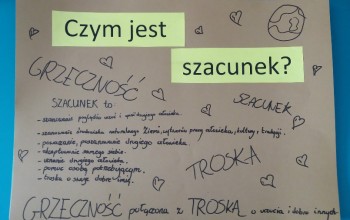 Czym jest
szacunek?
GRZECZNOŚĆ
SZACUNEK to:
SZACUNEK
- szanowanie poglądów, uczuć i opinii drugiego człowieka
- szanowanie środowiska naturalnego Ziemi, wytworów pracy człowieka, kultury, tradycji.
- poważanie, poszanowanie drugiego człowieka.
- akceptowanie samego siebie.
- uznanie drugiego człowieka.
- pomoc osobą potrzebującym.
- troska o swoje dobre imię.
TROSKA
GRZECZNOŚĆ połączona z TROSKĄ o uczucia i dobro innych